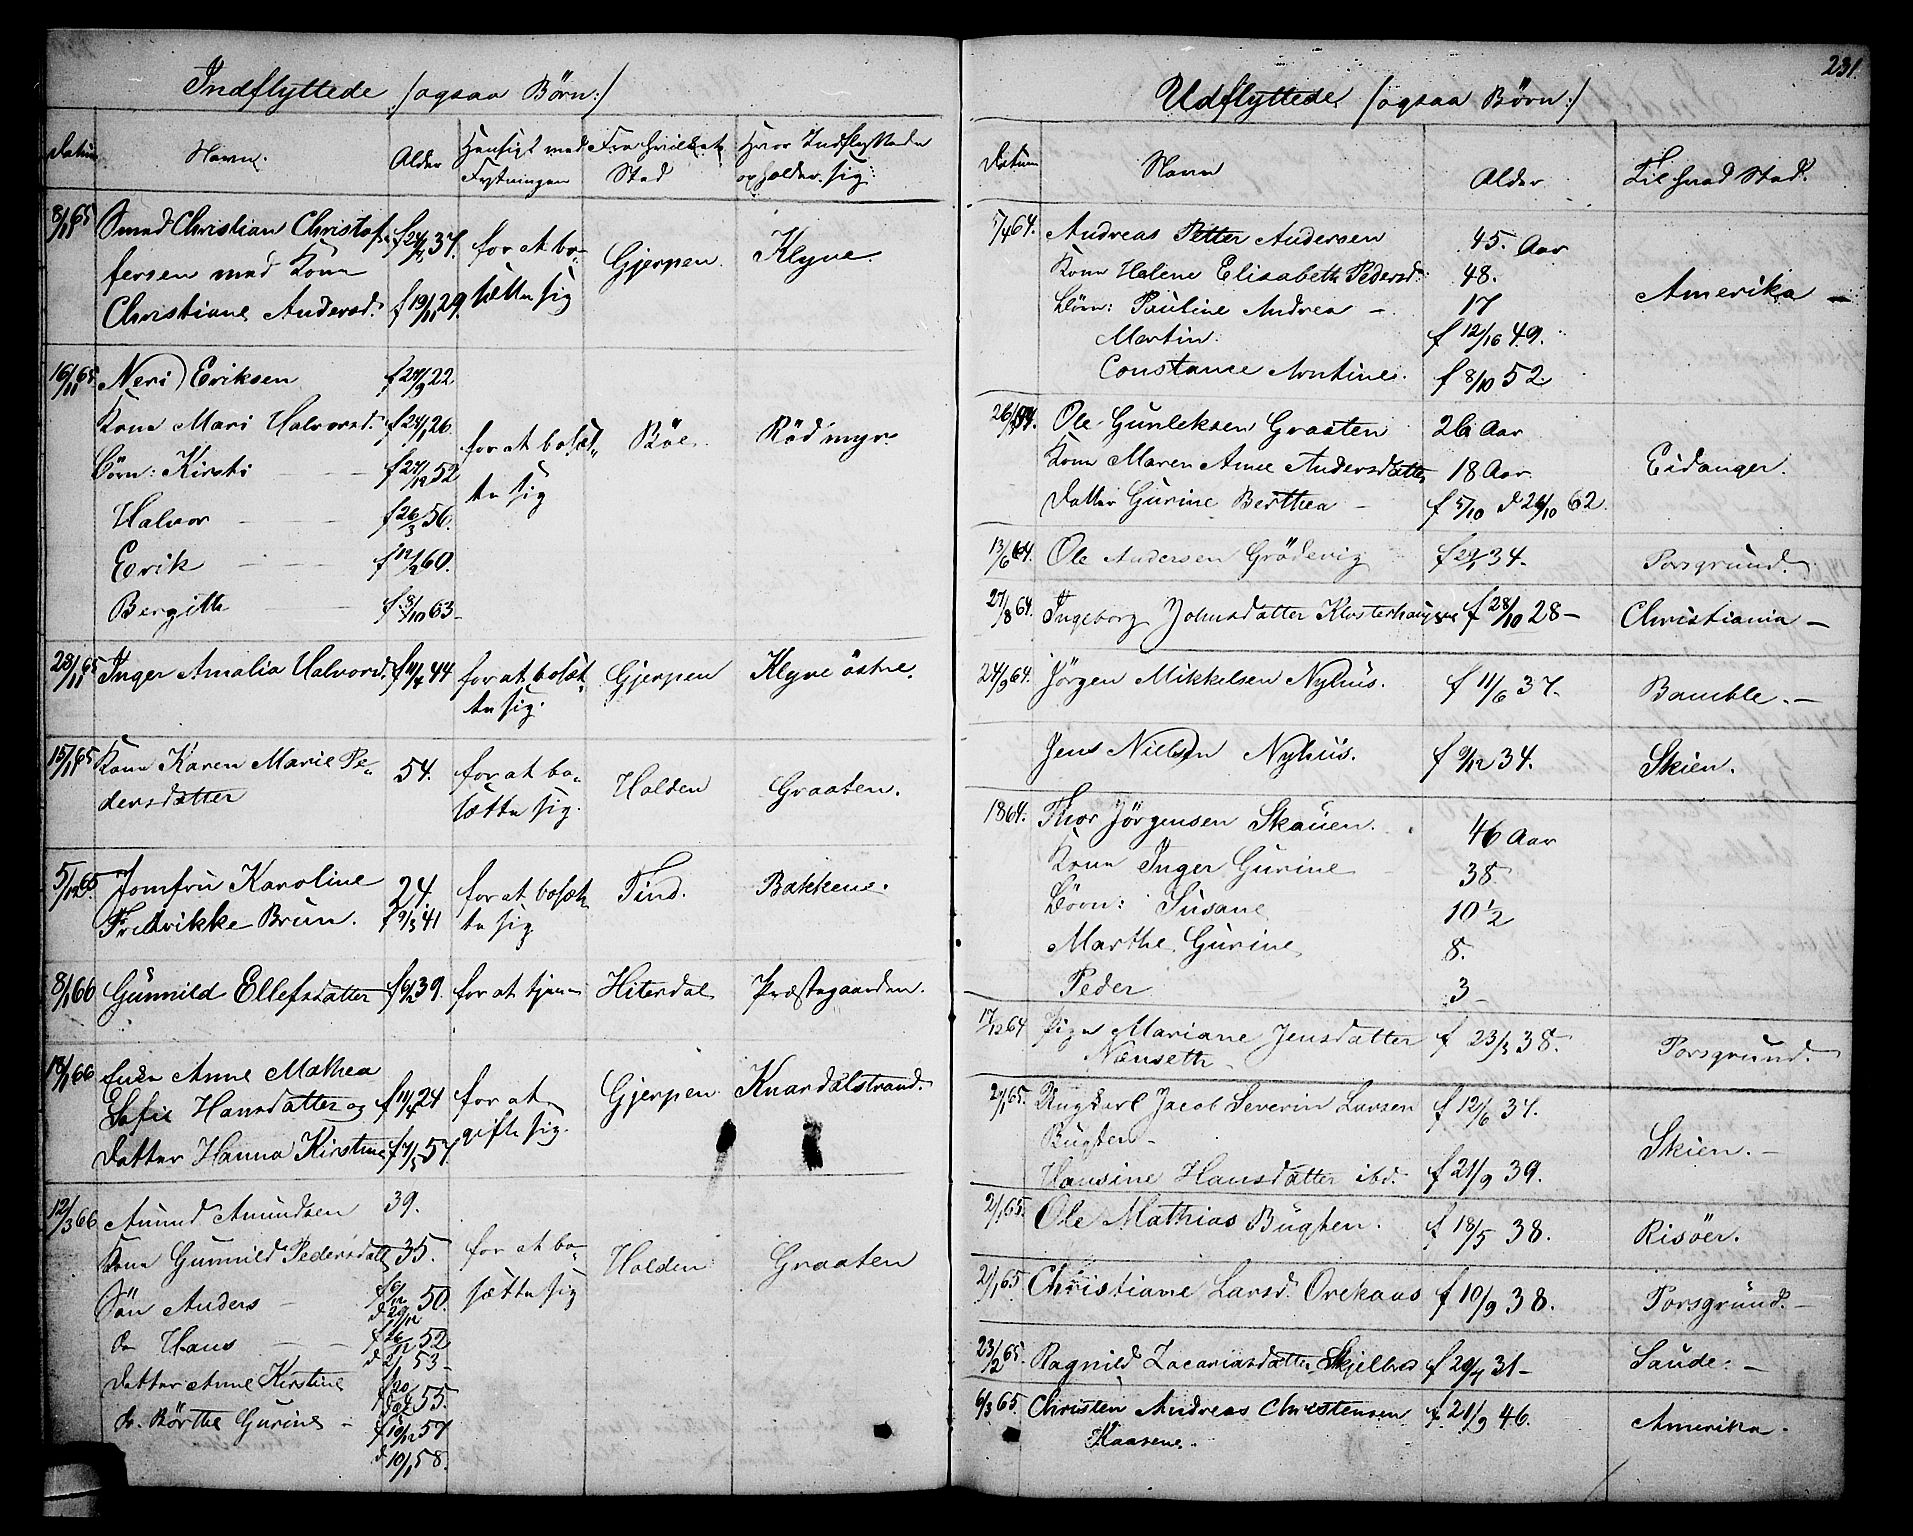 Indflyttede /ogsaa Børn:/
Datum Navn. Alder Hensigt med Flytningen Fra hvilket Sted Hvor Indflyttede opholder sig
8/11 65 Smed Christian Christof- f 24/2 37. for at bo- Gjerpen. Klyve.
fersen med Kone sætte sig
Christiane Andersd. f 19/11 29.
16/11 65 Neri Eriksen f 24/3 22
Kone Mari Halvorsd. f 24/1 26. for at bosæt- Böe. Rödmyr.
Börn: Kirsti f 27/12 52 te sig
Halvor f 26/3 56.
Erik f 12/2 60.
Bergith f 8/10 63
28/11 65 Inger Amalia Halvord. f 11/4 44 for at bosæt- Gjerpen Klyve östre.
te sig.
15/11 65 Kone Karen Marie Pe- 54. for at bo- Holden Graaten.
dersdatter sætte sig.
5/12 65 Jomfru Karoline 24. for at bosæt- Tind. Bakkene.
Fredrikke Brun. f 9/3 41 te sig
8/1 66 Gunnild Ellefsdatter f 6/12 39. for at tjene Hiterdal Præstegaarden.
18/1 66 Enke Anne Mathea
Sofie Hansdatter og f 11/4 24 for at Gjerpen Knardalstrand.
Datter Hanna Kirstine f 7/5 57. gifte sig.
12/3 66 Amund Amundsen 39.
Kone Gunnild Pedersdatt 35. for at bo- Holden Graaten
Sön Anders f 6/12 d 29/12 50. sætte sig
do Hans f 26/12 52 d 2/1 53
Datter Anne Kirstine 55.
do. Börthe Gurine f 10/12 57
d 10/1 58.
231
Udflyttede /ogsaa Børn:/
Datum Navn Alder Til hvad Sted.
5/4 64. Andreas Petter Andersen 45. Aar
Kone Helene Elisabeth Pedersd. 48.
Börn: Pauline Andrea – 17 Amerika –
Martin. f 12/16 49.
Constance Arntine. f 8/10 52.
26/4 64. Ole Gunleksen Graaten 26 Aar
Kone Maren Anne Andersdatter 18 Aar Eidanger.
Datter Gurine Berthea – f 5/10 d 26/10 62.
13/6 64. Ole Andersen Grödevig f 29/1 34. Porsgrund.
27/8 64. Ingeborg Johnsdatter Klosterhaugene f 28/10 28 – Christiania –
24/9 64. Jörgen Mikkelsen Nyhus. f 11/6 37. Bamble. –
Jens Nielsen Nyhus. f 9/12 34. Skien.
1864. Thor Jörgensen Skauen. 46 Aar
Kone Inger Gurine 38
Börn: Susane 10 1/2
Marthe Gurine 8.
Peder 3 –
17/12 64 Pige Mariane Jensdatter f 23/3 38. Porsgrund.
Nænseth –
2/1 65. Ungkarl Jacob Severin Larsen f 12/6 37.
Bugten – Skien. –
Hansine Hansdatter ibd. f 21/9 39.
2/1 65. Ole Mathias Bugten. f 18/5 38. Risöer.
2/1 65 Christiane Larsd. Orekaas f 10/9 38. Porsgrund. –
23/2 65. Ragnild Zacariasdatter Skjelbred f 29/4 31 – Saude. –
6/3 65. Christen Andreas Christensen f. 21/9 46. Amerika.
Kaasene.